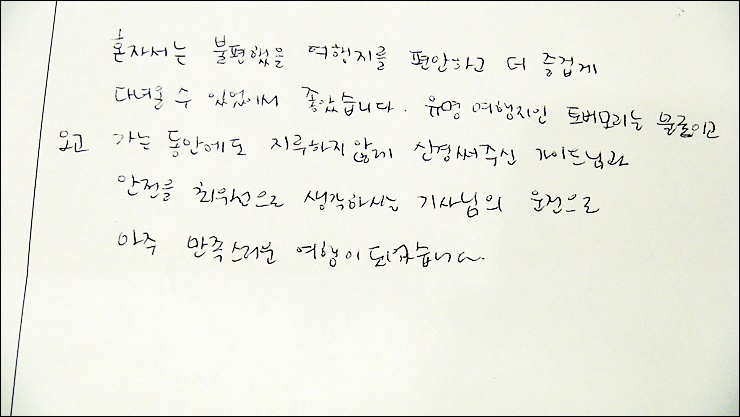 혼자서는 불편했을 여행지를 편안하고 더 즐겁게
다녀올 수 있었어서 좋았습니다. 유명 여행지인 토버모리는 물론이고
오고 가는 동안에도 지루하지 않게 신경써주신 가이드님과
안전을 최우선으로 생각하시는 기사님의 운전으로
아주 만족스러운 여행이 되었습니다.